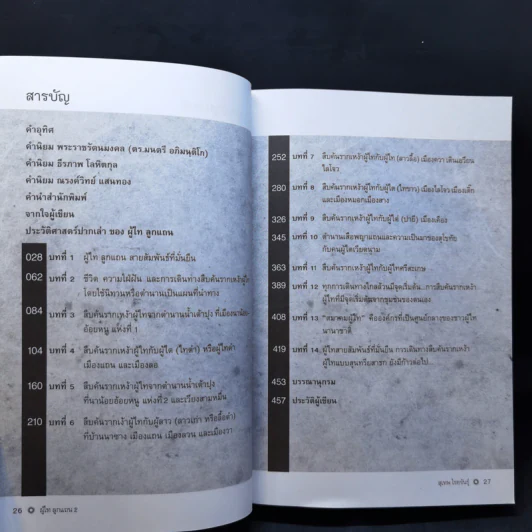 สารบัญ
คำอุทิศ
คำนิยม พระราชรัตนมงคล (ดร.มนตรี อภิมนฺติโก)
คำนิยม ธีรภาพ โลหิตกุล
คำนิยม ณรงค์วิทย์ แสนทอง
คำนำสำนักพิมพ์
จากใจผู้เขียน
ประวัติศาสตร์ปากเล่า ของ ผู้ไท ลูกแถน
028 บทที่ 1 ผู้ไท ลูกแถน สายสัมพันธ์ที่มั่นยืน
062 บทที่ 2 ชีวิต ความใฝ่ฝัน และการเดินทางสืบค้นรากเหง้าผู้ไท
โดยใช้นิทานหรือตำนานเป็นแผนที่นำทาง
084 บทที่ 3 สืบค้นรากเหง้าผู้ไทจากตำนานน้ำเต้าปุง ที่เมืองนาน้อย
อ้อยหนู แห่งที่ 1
104 บทที่ 4 สืบค้นรากเหง้าผู้ไทกับผู้ไต (ไทดำ) หรือผู้ไตดำ
เมืองแถน และเมืองลอ
160 บทที่ 5 สืบค้นรากเหง้าผู้ไทจากตำนานน้ำเต้าปุ่ง
ที่นาน้อยอ้อยหนู แห่งที่ 2 และเวียงสามหมื่น
210 บทที่ 6 สืบค้นรากเหง้าผู้ไทกับผู้ลาว
ที่บ้านนาซาง เมืองแถน
26 ผู้ไท ลูกแถน 2
252 บทที่ 7 สืบค้นรากเหง้าผู้ไทกับผู้ไท (ลาวลื้อ) เมืองควา เดินเมเวียน
ไลโจว
280 บทที่ 8 สืบค้นรากเหง้าผู้ไทกับผู้ไต (ไทขาว) เมืองไลโจว เมืองเติ๊ก
และเมืองหมอกเมืองสาง
326 บทที่ 9 สืบค้นรากเหง้าผู้ไทกับผู้ไต่ เมืองเคือง
345 บทที่ 10 ตำนานเสือพญาแถนและความเป็นมาของสุโขทัย
กับคนผู้ไตเวียดนาม
363 บทที่ 11 สืบค้นรากเหง้าผู้ไทกับผู้ไทศรีสะเกษ
389 บทที่ 12 ทุกการเดินทางไกลล้วนมีจุดเริ่มต้น...การสืบค้นรากเหง้า
ผู้ไทที่มีจุดเริ่มต้นจากชุมชนของตนเอง
408 บทที่ 13 "สมาคมผู้ไท" คือองค์กรที่เป็นศูนย์กลางของชาวผู้ไท
นานาชาติ
419 บทที่ 14 ผู้ไทสายสัมพันธ์ที่มั่นยืน การเดินทางสืบค้นรากเหง้า
ผู้ไทแบบสุนทรียสาธก ยังมีก้าวต่อไป...
453 บรรณานุกรม
457 ประวัติผู้เขียน
27